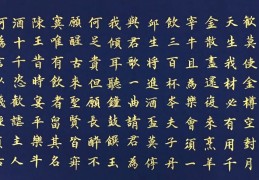 歡莫使金樽空對月
天生我材必有用千
金散盡還復來烹羊
宰牛且為樂會須一
飲三百杯岑夫子丹
邱生將進酒君莫停
與君歌一曲請君為
我傾耳聽鐘鼓饌玉
何足貴但願長醉不
願醒古來聖賢皆寂
寞惟有飲者留其名
陳王昔時宴平樂斗
酒十千恣歡謔主人
何為言